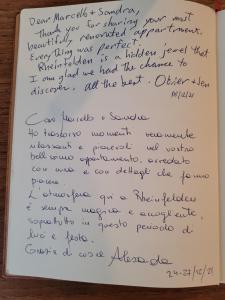 Dear Marcello + Sandra,
Thank you for sharing your most
beautifully renovated appartment.
Everything was perfect.
Rheinfelden is a hidden jewel that
I am glad we had the chance to
discover. All the best.
Cari Marcello e Sandra
Ho trascorso momenti veramente
rilassanti e piacevoli nel vostro
bellissimo apartamento, arredato
con cura e con dettagli che fanno
L'atmosfera qui a Rheinfelden
è sempre magica e accogliente,
soprattutto in questo periodo di
luci e festa.
Grazie di cuore Alexandra
24-27/12/21